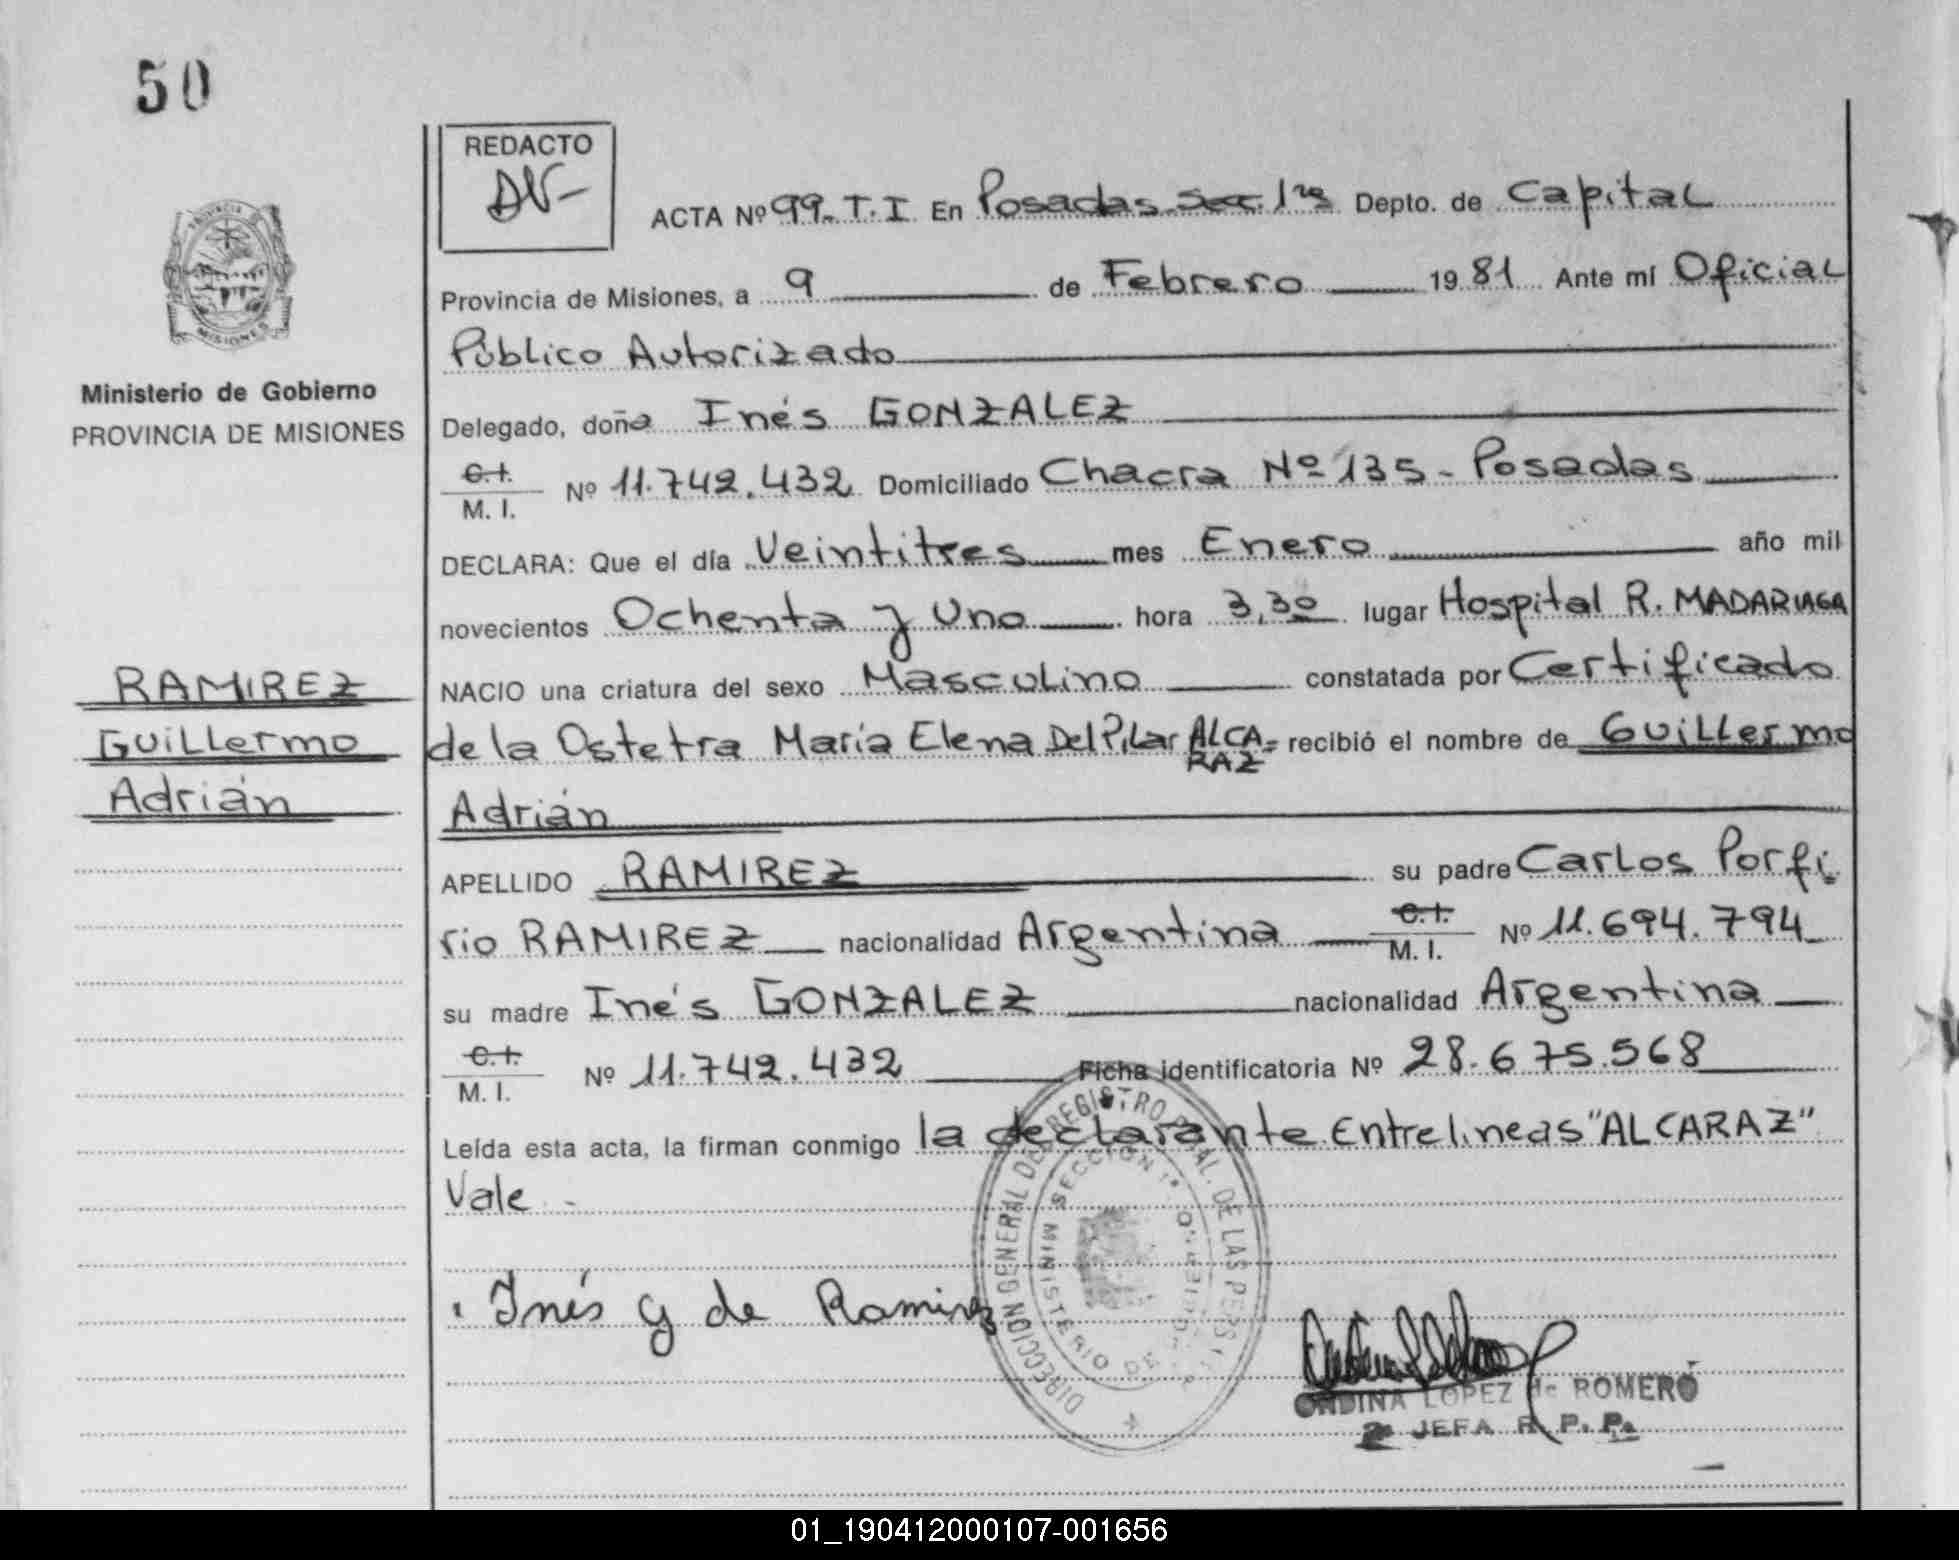 50
REDACTO
DV-
PROVINCIA DE
MISIONES
Ministerio de Gobierno
PROVINCIA DE MISIONES
RAMIREZ
Guillermo
Adrián
ACTA Nº 99. T.I En Posadas Sec. 1ra Depto. de Capital
Provincia de Misiones, a 9 de Febrero 1981 Ante mí Oficial
Público Autorizado
Delegado, doña Inés GONZALEZ
C.I.
M. I. Nº 11.742.432 Domiciliado Chacra Nº 135 - Posadas
DECLARA: Que el día Veintitres mes Enero año mil
novecientos Ochenta y Uno hora 3,30 lugar Hospital R. MADARIAGA
NACIO una criatura del sexo Masculino constatada por Certificado
de la Ostetra María Elena Del Pilar ALCA= recibió el nombre de Guillermo
RAZ
Adrián
APELLIDO RAMIREZ su padre Carlos Porfi
rio RAMIREZ nacionalidad Argentina C.I. Nº 11.694.794
M. I.
su madre Inés GONZALEZ nacionalidad Argentina
C.I.
M. I. Nº 11.742.432 Ficha identificatoria Nº 28.675.568
Leída esta acta, la firman conmigo la declarante Entrelineas "ALCARAZ"
Vale -
Inés G de Ramirez
DIRECCION GENERAL DEL REGISTRO PCIAL. DE LAS PERS
SECCION 1ª
MINISTERIO DE
ONDINA LOPEZ de ROMERO
2ª JEFA R. P. P.
01_190412000107-001656